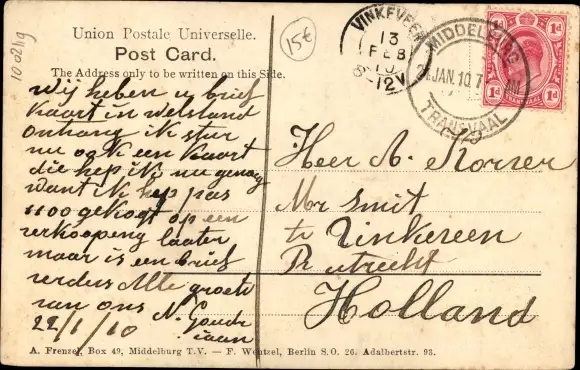 Union Postale Universelle.
Post Card.
The Address only to be written on this Side.
100249
15€
VINKEVEEN
13
FEB
10
8-12V
MIDDELBURG
JAN.10.7 AM
TRANSVAAL
1d 1d
wij heben u brief
kaart in welstand
onhang ik stur
nu ook een kaart
die hep ik nu genoeg
want ik hep pas
1100 gekogt op een
verkoopeng laater
maar is een brief
verders Alle groete
van ons N. Goude
22/1/10
Heer A. Korver
Mr Smit
te Vinkeveen
Pr utrecht
Holland
A. Frenzel, Box 49, Middelburg T.V. — F. Wentzel, Berlin S.O. 26. Adalbertstr. 93.